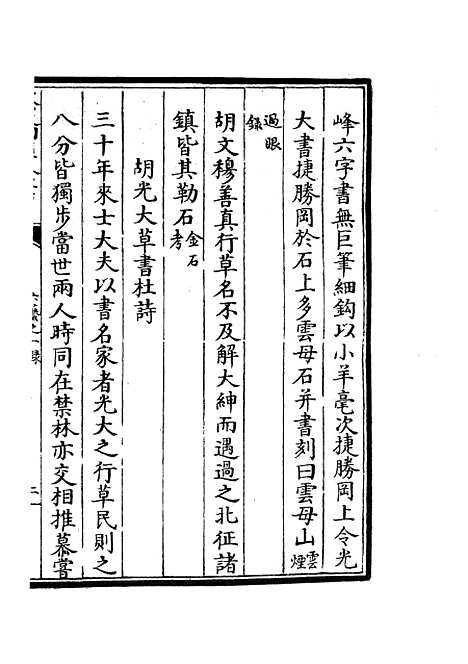 峰六字書無巨筆細鈎以小羊毫次捷勝岡上令光
大書捷勝岡於石上多雲母石并書刻曰雲母山雲煙
過眼錄
胡文穆善真行草名不及解大紳而遇過之北征諸
鎮皆其勒石金石考
胡光大草書杜詩
三十年來士大夫以書名家者光大之行草民則之
八分皆獨步當世兩人時同在禁林亦交相推慕嘗
六藝之一錄